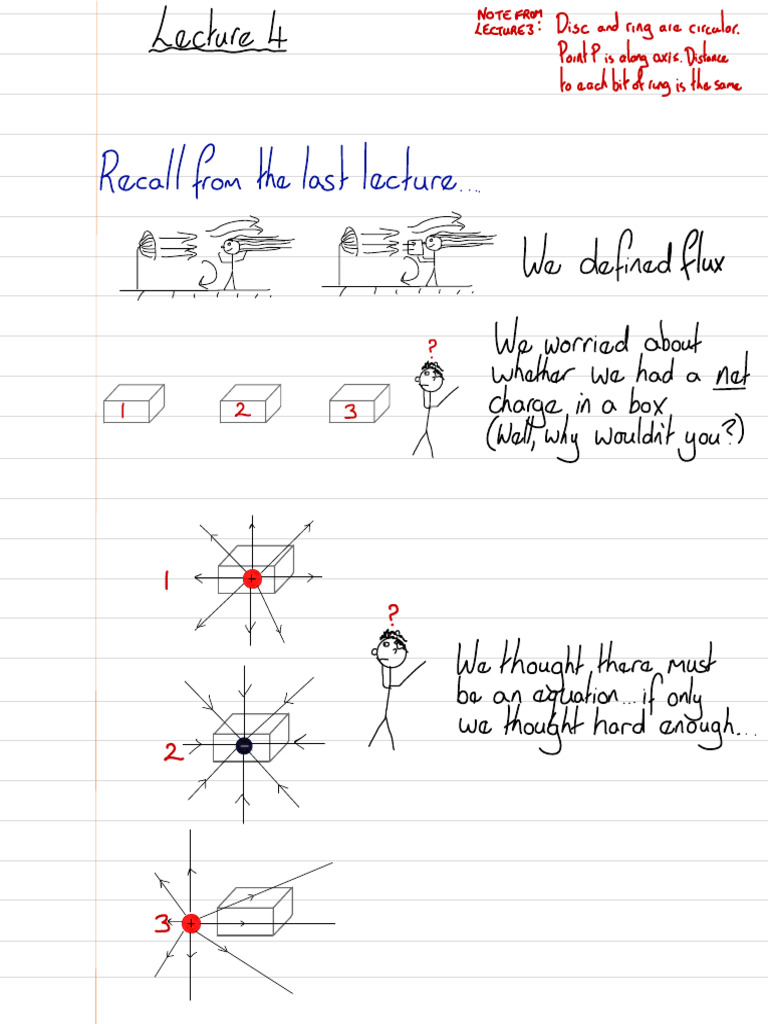 Lecture 4
NOTE FROM
LECTURE 3:
Disc and ring are circular.
Point P is along axis. Distance
to each bit of ring is the same
Recall from the last lecture....
We defined flux
?
We worried about
whether we had a net
charge in a box
(Well, why wouldn't you?)
1
2
3
1
+
?
We thought, there must
be an equation... if only
we thought hard enough...
2
−
3
+